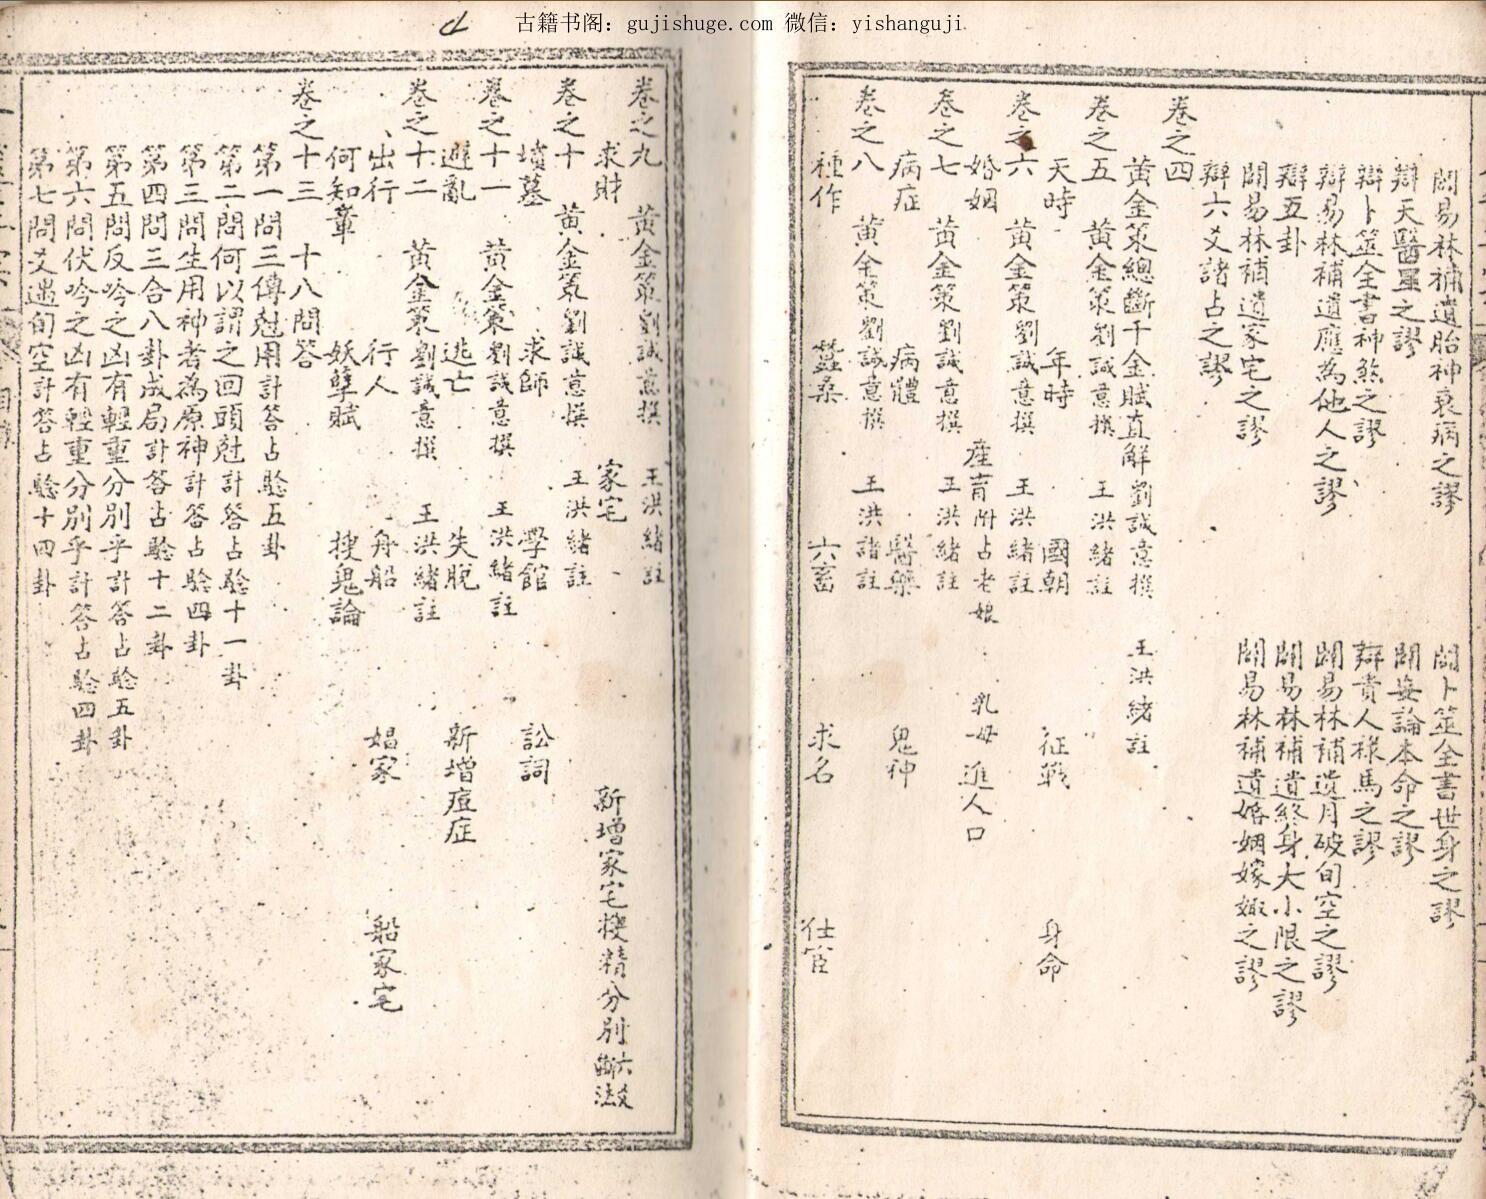 古籍书阁：gujishuge.com 微信：yishanguji
闢易林補遺胎神衰病之謬 闢卜筮全書世身之謬
辯天醫星之謬 闢妄論本命之謬
辯卜筮全書神煞之謬 辯貴人祿馬之謬
辯易林補遺應為他人之謬 闢易林補遺月破旬空之謬
辯五卦 闢易林補遺終身大小限之謬
闢易林補遺家宅之謬 闢易林補遺婚姻嫁娶之謬
辯六爻諸占之謬
卷之四
黃金策總斷千金賦直解 劉誠意撰 王洪緒註
卷之五 黃金策 劉誠意撰 王洪緒註
天時 年時 國朝 征戰 身命
卷之六 黃金策 劉誠意撰 王洪緒註
婚姻 產育附占老娘 乳母 進人口
卷之七 黃金策 劉誠意撰 王洪緒註
病症 病體 醫藥 鬼神
卷之八 黃金策 劉誠意撰 王洪諸註
種作 蚕桑 六畜 求名 仕宦
卷之九 黃金策 劉誠意撰 王洪緒註
求財 家宅 新增家宅搜精分別六爻斷法
卷之十 黃金策 劉誠意撰 王洪緒註
墳墓 求師 學館 訟詞
卷之十一 黃金策 劉誠意撰 王洪緒註
避亂 逃亡 失脫 新增痘症
卷之十二 黃金策 劉誠意撰 王洪緒註
出行 行人 舟船 娼家 船家宅
何知章 妖孽賦 搜鬼論
卷之十三 十八問答
第一問三傳尅用計答占驗五卦
第二問何以謂之回頭尅計答占驗十一卦
第三問生用神者為原神計答占驗四卦
第四問三合八卦成局計答占驗十二卦
第五問反吟之凶有輕重分別乎計答占驗五卦
第六問伏吟之凶有輕重分別乎計答占驗四卦
第七問爻遇旬空計答占驗十四卦